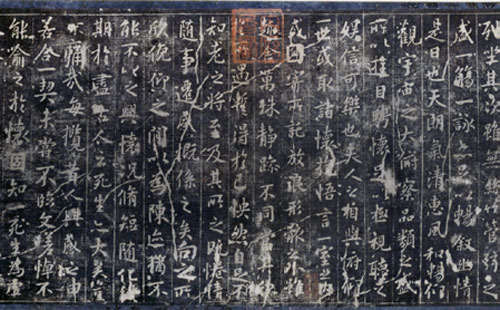 列坐其次雖無絲竹管弦之
盛一觴一詠亦足以暢敘幽情
是日也天朗氣清惠風和暢仰
觀宇宙之大俯察品類之盛
所以遊目騁懷足以極視聽之
娛信可樂也夫人之相與俯仰
一世或取諸懷抱悟言一室之內
或因寄所託放浪形骸之外雖
趣舍萬殊靜躁不同當其欣
於所遇暫得於己怏然自足不
知老之將至及其所之既惓情
隨事遷感慨係之矣向之所
欣俛仰之間以為陳迹猶不
能不以之興懷況脩短隨化終
期於盡古人云死生亦大矣豈
不痛哉每攬昔人興感之由
若合一契未嘗不臨文嗟悼不
能喻之於懷固知一死生為虛